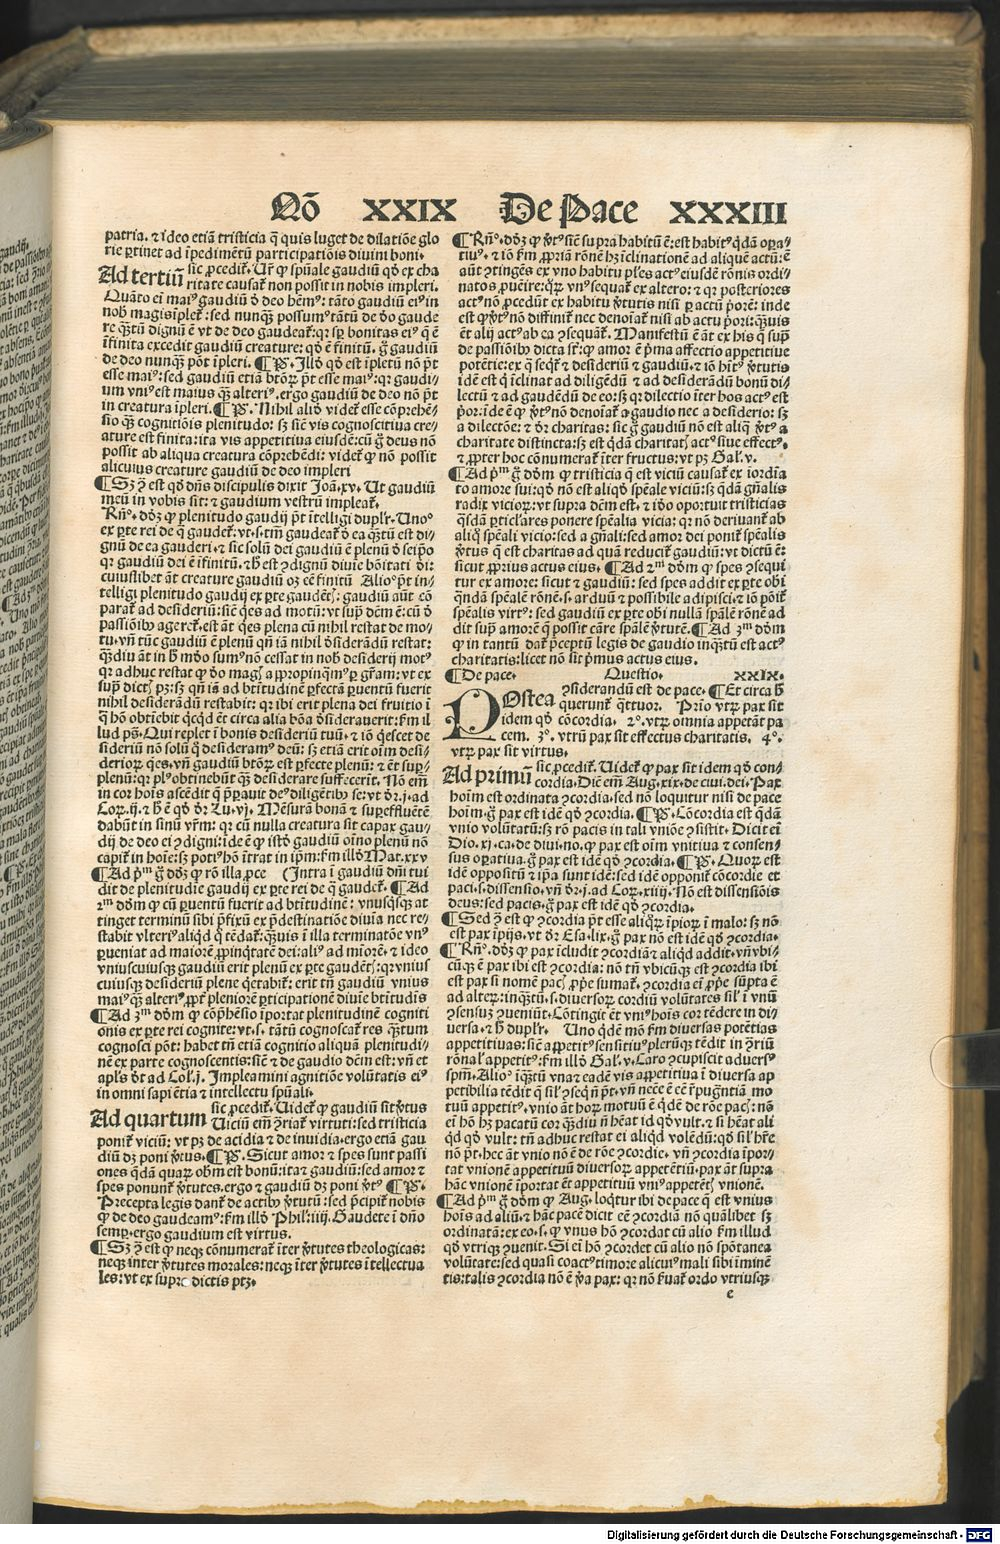 Qõ XXIX De Pace XXXIII
patria. ⁊ ideo etiã tristicia q̃ quis luget de dilatiõe glo
rie ꝑtinet ad ĩpedimẽtũ participatiõis diuini boni.
Ad tertiũ sic ꝓcedit᷑. Ur̃ ꝙ spũale gaudiũ qð ex cha
ritate causat᷑ non possit in nobis impleri.
Quãto eĩ maiꝰ gaudiũ ð deo hẽmꝰ: tãto gaudiũ eiꝰ in
nob̃ magis ĩplet᷑: sed nunꝙ̃ possumꝰ tãtũ de ðo gaude
re ꝙ̃tũ dignũ ẽ vt de deo gaudeat᷑: qꝛ sꝑ bonitas eiꝰ q̃ ẽ
ĩfinita excedit gaudiũ creature: qð ẽ finitũ. g̃ gaudiũ
de deo nunꝙ̃ põt ĩpleri. ¶ P̃. Illð qð est ĩpletũ nõ põt
esse maiꝰ: sed gaudiũ etiã btõꝝ põt esse maiꝰ: qꝛ gaudi-
um vniꝰ est maius ꝙ̃ alteriꝰ. ergo gaudiũ de deo nõ põt
in creatura ĩpleri. ¶ P̃. Nihil alið videt᷑ esse cõprehẽ-
sio ꝙ̃ cognitiõis plenitudo: sꝫ sicut vis cognoscitiua cre-
ature est finita: ita vis appetitiua eiusdẽ: cũ g̃ deus nõ
possit ab aliqua creatura cõprehẽdi: videt᷑ ꝙ nõ possit
alicuius creature gaudiũ de deo impleri
¶ Sꝫ ꝯ̃ est qð dñs discipulis dixit Joã. xv. Ut gaudiũ
meũ in vobis sit: ⁊ gaudium vestrũ impleat᷑.
Rñ°. dðꝫ ꝙ plenitudo gaudij põt ĩtelligi duplr̃. Unoꝰ
ex ꝑte rei de q̃ gaudet᷑: vt. s. tm̃ gaudeat᷑ ð ea ꝙ̃tũ est di-
gnũ de ea gauderi. ⁊ sic solũ dei gaudiũ ẽ plenũ ð seipo
qꝛ gaudiũ dei ẽ ĩfinitũ. ⁊ h̃ est ꝯdignũ diuie bõitati
cuiuslibet ãt creature gaudiũ oꝫ eẽ finitũ Alioꝰ põt in-
telligi plenitudo gaudij ex ꝑte gaudẽtꝭ: gaudiũ aũt cõ
parat᷑ ad desideriũ: sicut q̃es ad motũ: vt sup̃ dẽm ẽ: cũ ð
passiõibꝫ ageret᷑. est ãt q̃es plena cũ nihil restat de mo-
tu. vñ tũc gaudiũ ẽ plenũ qñ iã nihil ðsiderãdũ restat:
ꝙ̃diu ãt in h̃ mðo sumꝰ nõ cessat in nob̃ desiderij motꝰ
qꝛ adhuc restat ꝙ ðo magꝭ apropinq̃mꝰ ꝑ gr̃am: vt ex
sup̃ dictꝭ pꝫ: sꝫ qñ iã ad btĩtudinẽ ꝑfectã ꝑuentũ fuerit
nihil desiderãdũ restabit: qꝛ ibi erit plena dei fruitio ĩ
q̃ hõ obtĩebit q̃cq̃d ẽt circa alia bõa ðsiderauerit: fm̃ il
lud ps̃. Qui replet ĩ bonis desideriũ tuũ. ⁊ iõ q̃escet de
sideriũ nõ solũ q̃ desideramꝰ deũ: sꝫ etiã erit oĩm desi-
derioꝝ q̃es. vñ gaudiũ btõꝝ est ꝑfecte plenũ: ⁊ ẽt suꝑ-
plenũ: qꝛ plꝰ obtinebũt ꝙ̃ desiderare suffecerĩt. Nõ em̃
in cor hoĩs ascẽdit q̃ p̃ꝑauit deꝰ diligẽtibꝫ se: vt ðr. j. ad
Coꝝ. ij. ⁊ h̃ ẽ qð ðr Lu. vj. Mẽsurã bonã ⁊ suꝑeffluẽtẽ
dabũt in sinũ vr̃m: qꝛ cũ nulla creatura sit capax gau-
dij de deo ei ꝯdigni: ĩde ẽ ꝙ istð gaudiũ oĩno plenũ nõ
capit᷑ in hoĩe: sꝫ potꝰ hõ ĩtrat in ip̃m: fm̃ illð Mat. xxv
¶ Ad pᵐ g̃ dðꝫ ꝙ rõ illa ꝓce (Intra ĩ gaudiũ dñi tui
dit de plenitudĩe gaudij ex ꝑte rei de q̃ gaudet᷑. ¶ Ad
2ᵐ dõm ꝙ cũ ꝑuentũ fuerit ad btĩtudinẽ: vnusq̃sꝙ at
tinget terminũ sibi p̃fixũ ex p̃destinatiõe diuia nec re-
stabit vlteriꝰ aliq̃d q̃ tẽdat᷑: ꝙ̃uis ĩ illa terminatõe vnꝰ
ꝑueniat ad maiorẽ ꝓpinq̃tatẽ dei: aliꝰ ad miorẽ. ⁊ ideo
vniuscuiusꝙ gaudiũ erit plenũ ex ꝑte gaudẽtꝭ: qꝛ vnius
cuiusꝙ desideriũ plene q̃etabit᷑: erit tñ gaudiũ vnius
maiꝰ ꝙ̃ alteriꝰ ꝓpt᷑ pleniorẽ ꝑticipationẽ diuĩe btĩtudis
¶ Ad 3ᵐ dõm ꝙ cõp̃hẽsio ĩportat plenitudinẽ cogniti
onis ex ꝑte rei cognite: vt. s. tãtũ cognoscat᷑ res ꝙ̃tum
cognosci põt: habet tñ etiã cognitio aliquã plenitudi-
nẽ ex parte cognoscentis: sicut ⁊ de gaudio dẽm est: vñ et
apl̃s ðt ad Col. j. Impleamini agnitiõe volũtatis eiꝰ
in omni sapiẽtia ⁊ intellectu spũali.
Ad quartum sic ꝓcedit᷑. Uidet᷑ ꝙ gaudiũ sit v̓tus
Uiciũ em̃ ꝯ̃riat᷑ virtuti: sed tristicia
ponit᷑ viciũ: vt pꝫ de acidia ⁊ de inuidia. ergo etiã gau
diũ dꝫ poni v̓tus. ¶ P̃. Sicut amor ⁊ spes sunt passi
ones q̃dã quaꝝ obm̃ est bonũ: ita ⁊ gaudiũ: sed amor ⁊
spes ponunt᷑ v̓tutes. ergo ⁊ gaudiũ dꝫ poni v̓tꝰ ¶ P̃.
Precepta legis dant᷑ de actibꝫ v̓tutũ: sed p̃cipit᷑ nobis
ꝙ de deo gaudeamꝰ: fm̃ illð Phil. iiij. Gaudete ĩ dño
semꝑ. ergo gaudium est virtus.
¶ Sꝫ ꝯ̃ est ꝙ neqꝫ cõnumerat᷑ ĩter v̓tutes theologicas:
neqꝫ inter v̓tutes morales: neqꝫ ĩter v̓tutes ĩtellectua
les: vt ex supra dictis ptꝫ.
¶ Rñ°. dðꝫ ꝙ v̓tꝰ sicut supra habitũ ẽ: est habitꝰ q̃dã oꝑa-
tiuꝰ. ⁊ iõ fm̃ ꝓpriã rõnẽ hꝫ ĩclinationẽ ad aliquẽ actũ: ẽ
aũt ꝯtingẽs ex vno habitu pl̃es actꝰ eiusdẽ rõnis ordi-
natos ꝓuẽire: qꝝ vnꝰ sequat᷑ ex altero: ⁊ qꝛ posteriores
actꝰ nõ ꝓcedũt ex habitu v̓tutis nisi ꝑ actũ p̃orẽ: inde
est ꝙ v̓tꝰ nõ diffinit᷑ nec denoĩat᷑ nisi ab actu p̃ori: ꝙ̃uis
ẽt alij actꝰ ab ea ꝯsequãt᷑. Manifestũ ẽ ãt ex his q̃ sup̃
de passiõibꝫ dicta st̃: ꝙ amor ẽ p̃ma affectio appetitiue
potẽtie: ex q̃ seq̃t᷑ ⁊ desideriũ ⁊ gaudiũ. ⁊ iõ hĩtꝰ v̓tutis
idẽ est q̃ ĩclinat ad diligẽdũ ⁊ ad desiderãdũ bonũ di-
lectũ ⁊ ad gaudẽdũ de eo: sꝫ qꝛ dilectio ĩter hos actꝰ est
p̃or: ĩde ẽ ꝙ v̓tꝰ nõ denoĩat᷑ a gaudio nec a desiderio: sꝫ
a dilectõe: ⁊ ðr charitas: sic g̃ gaudiũ nõ est aliq̃ v̓tꝰ a
charitate distincta: sꝫ est q̃dã charitatꝭ actꝰ siue effectꝰ.
⁊ ꝓpter hoc cõnumerat᷑ ĩter fructus: vt pꝫ Gal. v.
¶ Ad pᵐ g̃ dõm ꝙ tristicia q̃ est viciũ causat᷑ ex iordĩa
to amore sui: qð nõ est aliqð sp̃eale viciũ: sꝫ q̃dã gñalis
radix vicioꝝ: vt supra dẽm est. ⁊ iðo oportuit tristicias
q̃sdã ꝑticl̃ares ponere sp̃ealia vicia: qꝛ nõ deriuant᷑ ab
aliq̃ sp̃eali vicio: sed a gñali: sed amor dei ponit᷑ sp̃ealis
v̓tus q̃ est charitas ad quã reducit᷑ gaudiũ: vt dictũ ẽ:
sicut ꝓprius actus eius. ¶ Ad 2ᵐ dõm ꝙ spes ꝯsequi
tur ex amore: sicut ⁊ gaudiũ: sed spes addit ex ꝑte obi
q̃ndã sp̃ealẽ rõnẽ. s. arduũ ⁊ possibile adipisci. ⁊ iõ põit᷑
sp̃ealis virtꝰ: sed gaudiũ ex ꝑte obi nullã sp̃alẽ rõnẽ ad
dit sup̃ amorẽ q̃ possit cãre sp̃alẽ v̓tutẽ. ¶ Ad 3ᵐ dõm
ꝙ in tantũ dat᷑ p̃ceptũ legis de gaudio inꝙ̃tũ est actꝰ
charitatis: licet nõ sit p̃mus actus eius.
¶ De pace. Questio. xxix.
POstea ꝯsiderandũ est de pace. ¶ Et circa h̃
querunt᷑ q̃ttuor. Prio vtꝝ pax sit
idem qð cõcordia. 2°. vtꝝ omnia appetãt pa
cem. 3°. vtrũ pax sit effectus charitatis. 4°.
vtꝝ pax sit virtus.
Ad primũ sic ꝓcedit᷑. Uidet᷑ ꝙ pax sit idem qð con-
cordia. Dic̃ em̃ Aug. xix. de ciui. dei. Pax
hoĩm est ordinata ꝯcordia. sed nõ loquitur nisi de pace
hoĩm. g̃ pax est idẽ qð ꝯcordia. ¶ P̃. Cõcordia est q̃dã
vnio volũtatũ: sꝫ rõ pacis in tali vniõe ꝯsistit. Dicit eĩ
Dio. xj. ca. de diui. no. ꝙ pax est oĩm vnitiua ⁊ consen-
sus oꝑatiua. g̃ pax est idẽ qð ꝯcordia. ¶ P̃. Quoꝝ est
idẽ oppositũ ⁊ ip̃a sunt idẽ: sed idẽ opponit᷑ cõcordie et
paci. s. dissensio. vñ ðr. j. ad Coꝝ. xiiij. Nõ est dissensiõis
deus: sed pacis. g̃ pax est idẽ qð ꝯcordia.
¶ Sed ꝯ̃ est ꝙ ꝯcordia põt esse aliq̃ꝝ ĩpioꝝ ĩ malo: sꝫ nõ
est pax ĩpijs. vt ðr Esa. lix. g̃ pax nõ est idẽ qð ꝯcordia.
¶ Rñ°. dðꝫ ꝙ pax ĩcludit ꝯcordiã ⁊ aliq̃d addit. vñ vbi-
cũqꝫ ẽ pax ibi est ꝯcordia: nõ tñ vbicũqꝫ est ꝯcordia ibi
est pax si nomẽ pacꝭ ꝓpe sumat᷑. ꝯcordia eĩ ꝓpe sũpta ẽ
ad alteꝝ: inꝙ̃tũ. s. diuersoꝝ cordiũ volũtates sil̃ ĩ vnũ
ꝯsensuꝫ ꝯueniũt. Cõtingit ẽt vniꝰ hoĩs cor tẽdere in di-
uersa. ⁊ h̃ duplr̃. Uno q̃dẽ mõ fm̃ diuersas potẽtias
appetitiuas: sicut appetitꝰ sensitiuꝰ pleꝝqꝫ tẽdit in ꝯ̃riũ
rõnal̃ appetitꝰ: fm̃ illð Gal. v. Caro ꝯcupiscit aduersꝰ
spm̃. Alioꝰ inꝙ̃tũ vna ⁊ eadẽ vis appetitiua ĩ diuersa ap
petibilia tẽdit q̃ sil̃ ꝯseq̃ nõ põt. vñ necẽ ẽ eẽ rep̃ugñtiam mo
tuũ appetitꝰ. vnio ãt hoꝝ motuũ ẽ q̃dẽ de rõe pacꝭ: nõ
eĩ hõ hꝫ pacatũ cor ꝙ̃diu ñ hẽat id qð vult. ⁊ si hẽat ali
q̃d qð vult: tñ adhuc restat ei aliq̃d volẽdũ: qð sil̃ hr̃e
nõ põt. hec ãt vnio nõ ẽ de rõe ꝯcordie. vñ ꝯcordia ĩpor-
tat vnionẽ appetituũ diuersoꝝ appetẽtiũ. pax ãt supra
hãc vnionẽ ĩportat ẽt appetituũ vniꝰ appetẽtꝭ vnionẽ.
¶ Ad pᵐ g̃ dõm ꝙ Aug. loq̃tur ibi de pace q̃ est vnius
hoĩs ad aliũ. ⁊ hãc pacẽ dicit eẽ ꝯcordiã nõ quãlibet sꝫ
ordinatã: ex eo. s. ꝙ vnus hõ ꝯcordat cũ alio fm̃ illud
qð vtriqꝫ ꝯuenit. Si eĩ hõ ꝯcordet cũ alio nõ spõtanea
volũtate: sed quasi coactꝰ timore alicuiꝰ mali sibi ĩminẽ
tis: talis ꝯcordia nõ ẽ v̓a pax: qꝛ nõ f̃uat᷑ ordo vtriusqꝫ
e
Digitalisierung gefördert durch die Deutsche Forschungsgemeinschaft - DFG